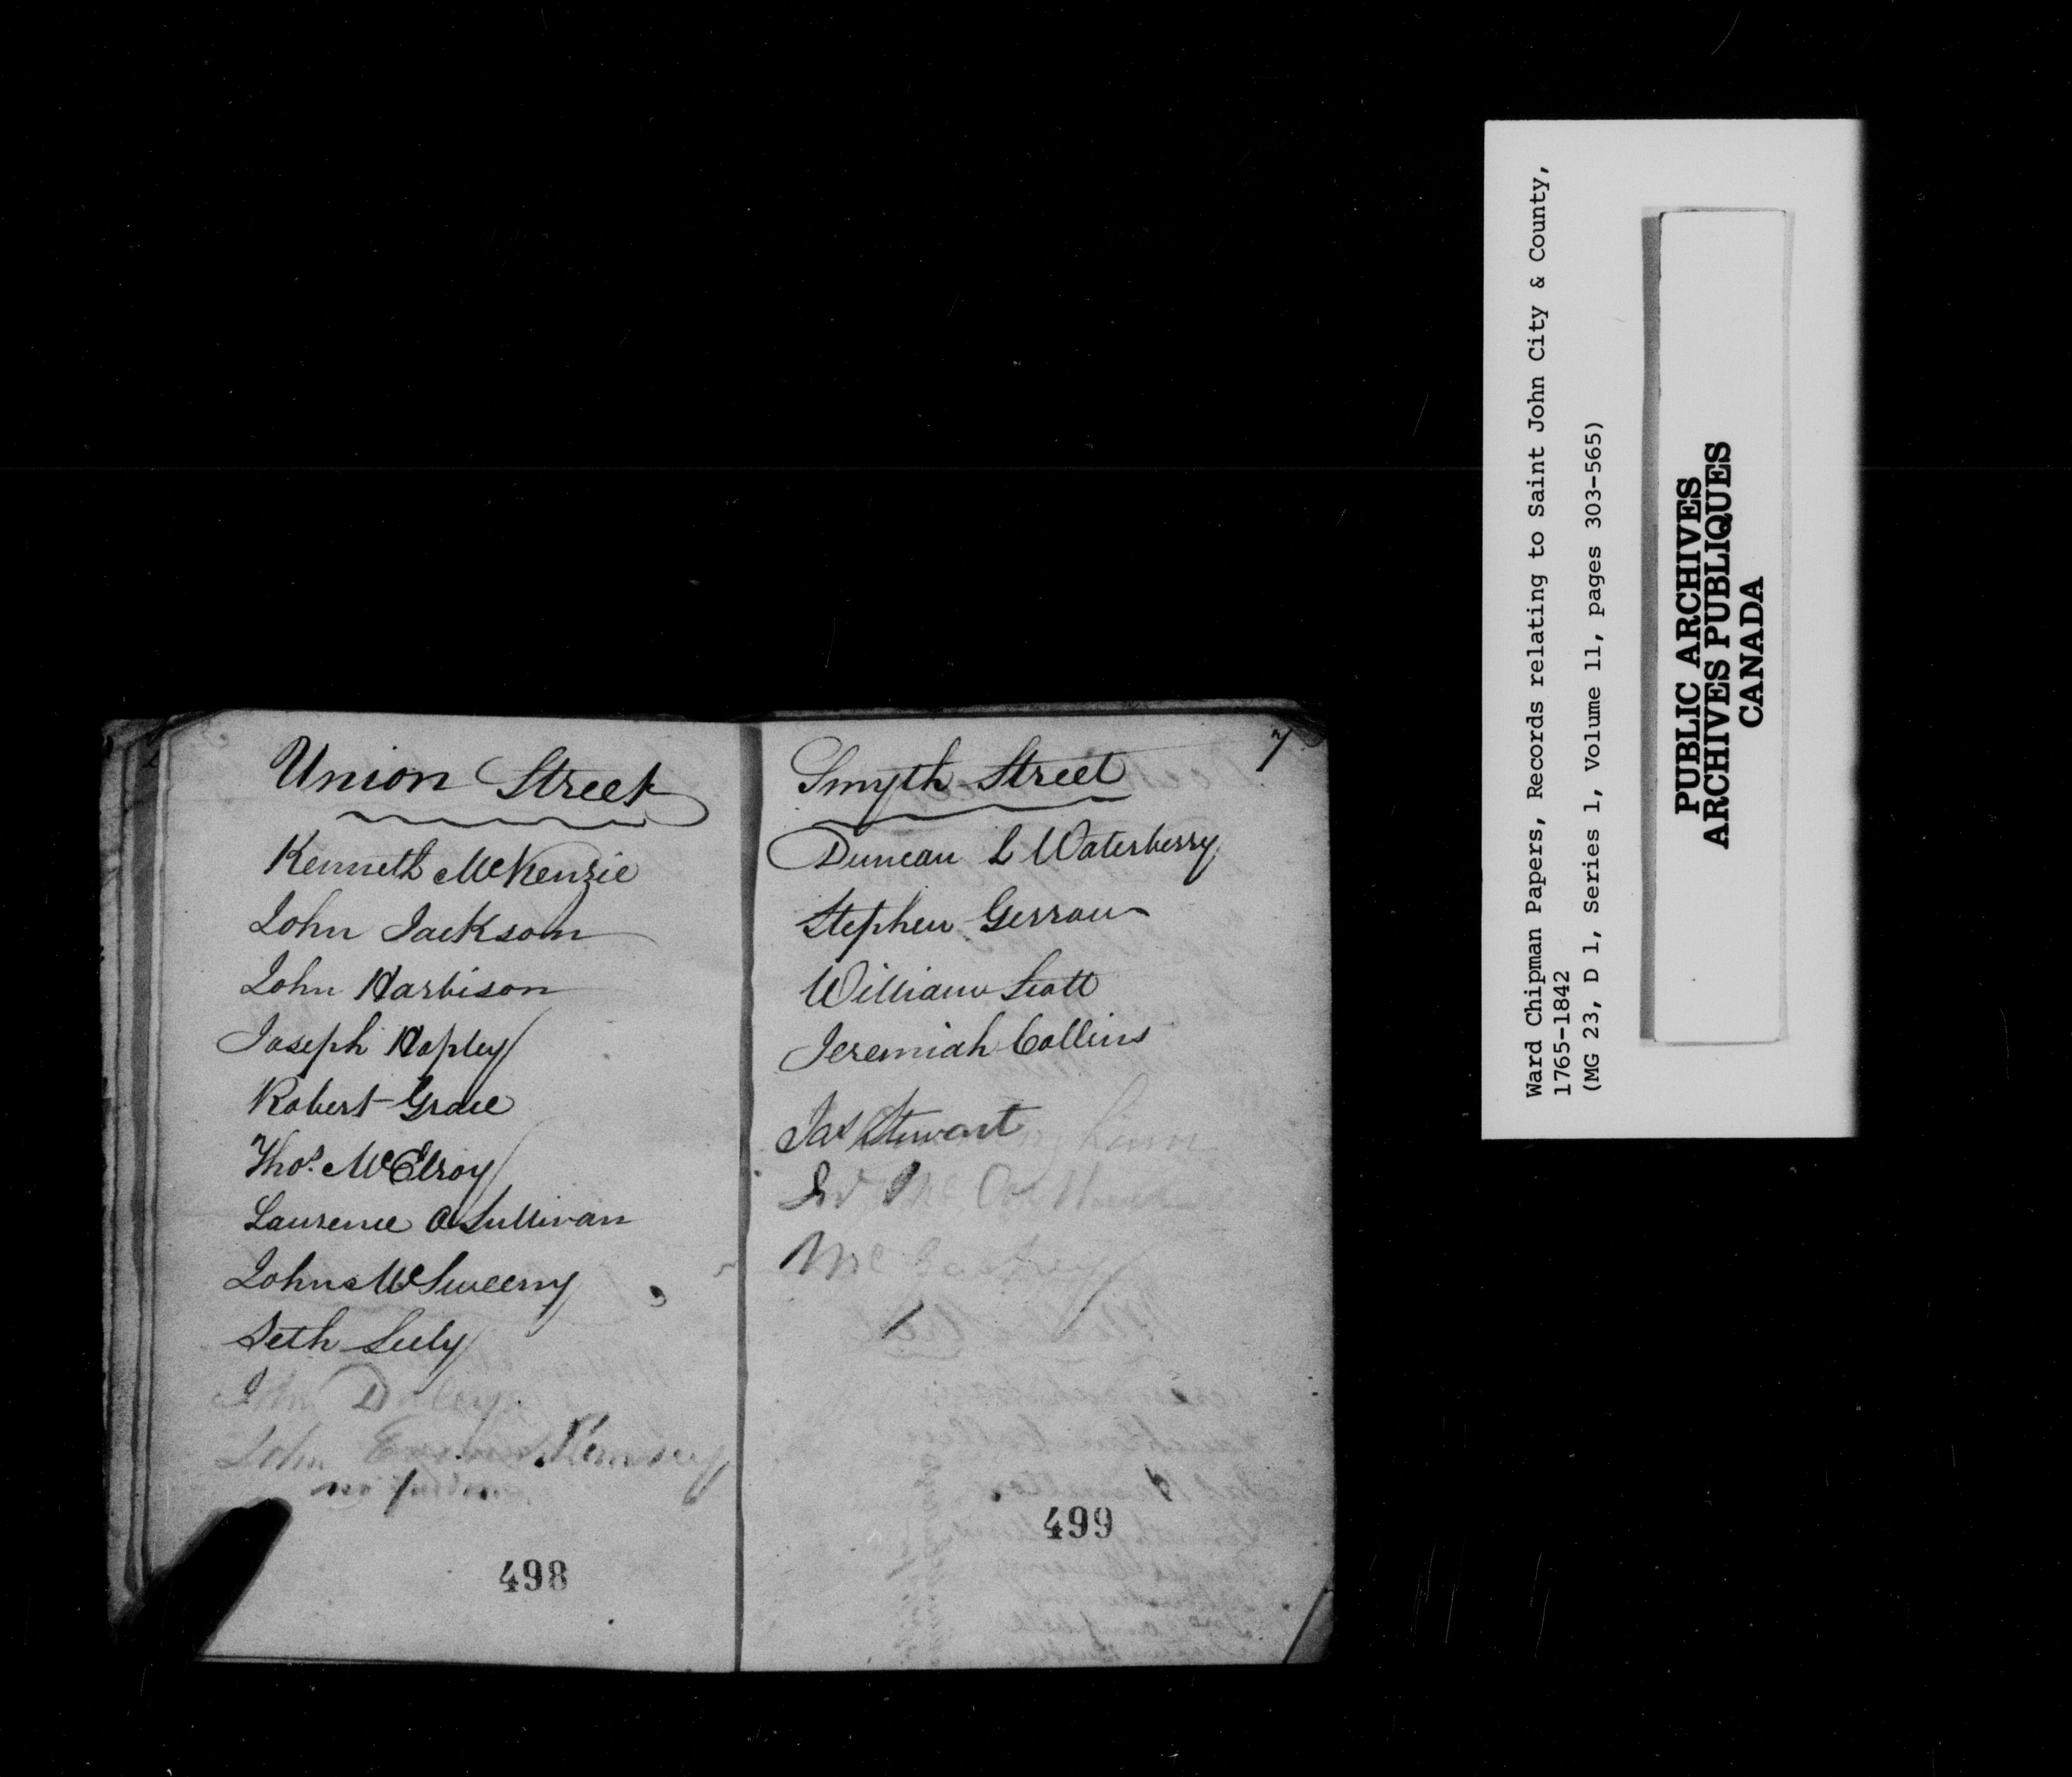 Union Street
Kenneth McKenzie
John Jackson
John Harbison
Joseph Hopley
Robert Grace
Thos. McElroy
Laurence O Sullivan
John McSweeny
Seth Seely
John Daley
John Kemsey
498
7
Smyth Street
Duncan L Waterberry
Stephen Gerrow
William Scott
Jeremiah Collins
Jas Stewart
Mc
499
Ward Chipman Papers, Records relating to Saint John City & County,
1765-1842
(MG 23, D 1, Series 1, Volume 11, pages 303-565)
PUBLIC ARCHIVES
ARCHIVES PUBLIQUES
CANADA